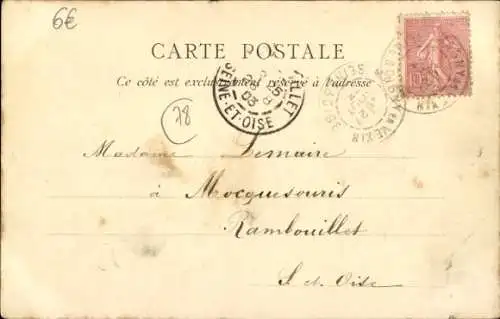 6€
CARTE POSTALE
Ce côté est exclusivement réservé à l'adresse
SEINE-ET-OISE
03
78
EN VEXIN
Madame Lemaire
à Mocquesouris
Rambouillet
S et Oise